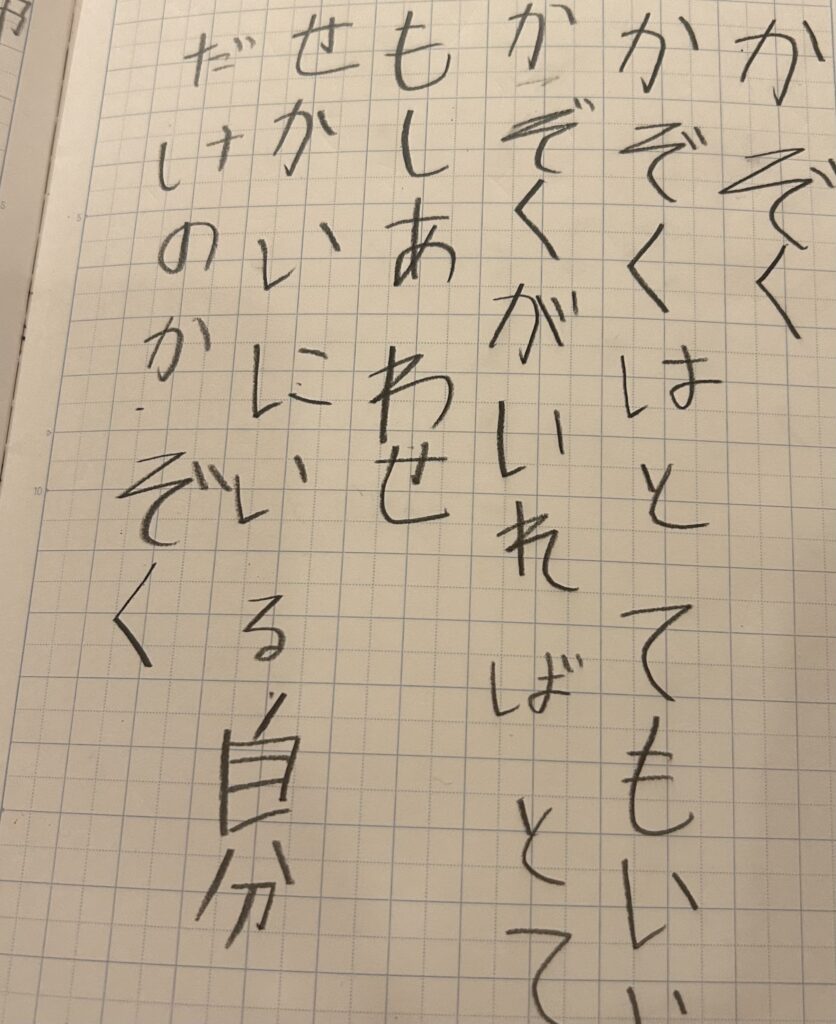 かぞく
かぞくはとてもいい
かぞくがいればとて
もしあわせ
せかいにいる自分
だけのかぞく